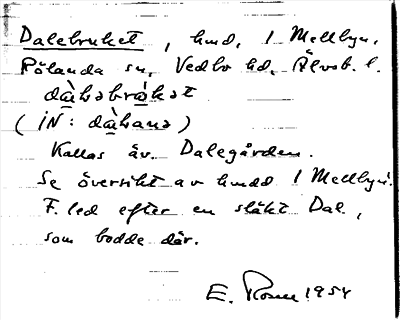 Dalebruket, hmd, 1 Mellbyn.
Rölanda sn, Vedbo hd, Älvsb. l.
(IN: 
Kallas äv. Dalegården.
Se översikt av hmdd 1 Mellbyn.
F. led efter en släkt Dal,
som bodde där.
E. Rosen 1954